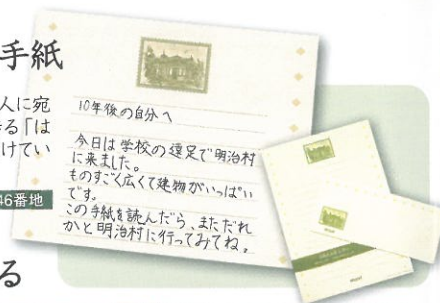 手紙
人に宛
る「は
けてい
46番地
る
10年後の自分へ
今日は学校の遠足で明治村
に来ました。
ものすごく広くて建物がいっぱい
です。
この手紙を読んだら、まただれ
かと明治村に行ってみてね。